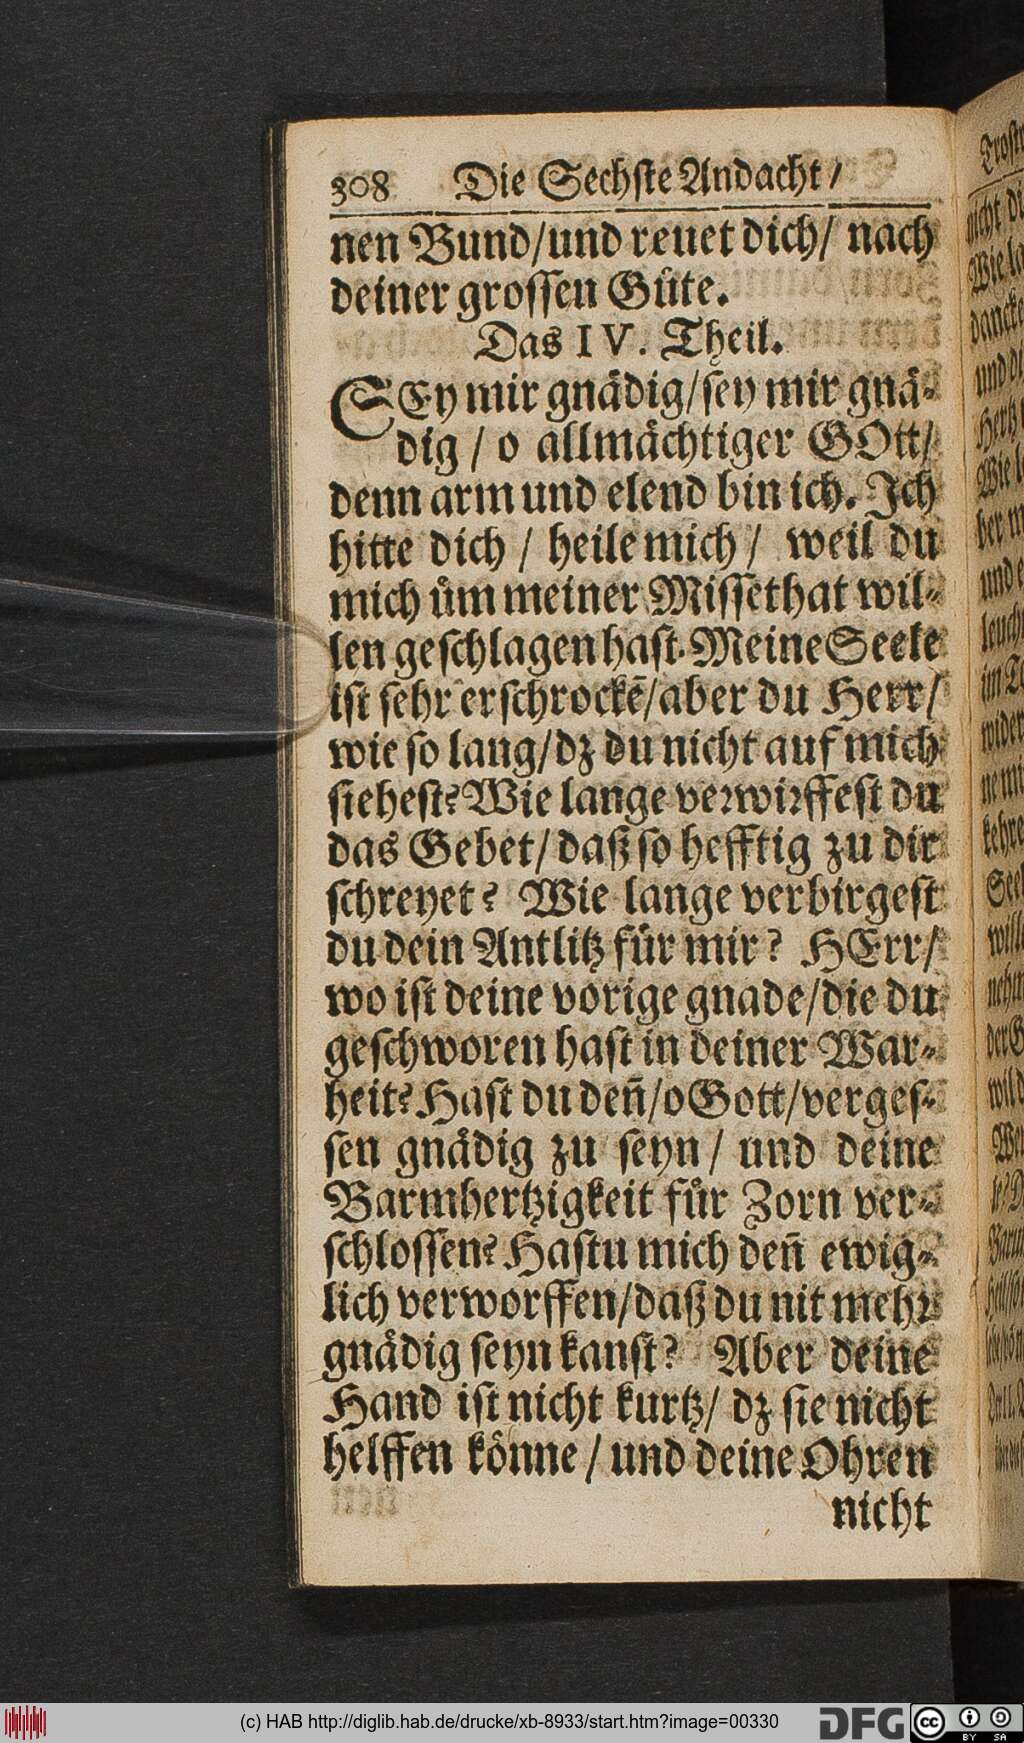 308 Die Sechste Andacht /
nen Bund/und reuet dich/ nach
deiner grossen Güte.
Das IV. Theil.
SEy mir gnädig/sey mir gnä-
dig / o allmächtiger GOtt/
denn arm und elend bin ich. Ich
bitte dich / heile mich / weil du
mich üm meiner Missethat wil-
len geschlagen hast. Meine Seele
ist sehr erschrockē/aber du Herr/
wie so lang/dz du nicht auf mich
siehest? Wie lange verwirffest du
das Gebet/daß so hefftig zu dir
schreyet? Wie lange verbirgest
du dein Antlitz für mir? HErr/
wo ist deine vorige gnade/die du
geschworen hast in deiner War-
heit? Hast du deñ/o Gott/verges-
sen gnädig zu seyn / und deine
Barmhertzigkeit für Zorn ver-
schlossen? Hastu mich deñ ewig-
lich verworffen/daß du nit mehr
gnädig seyn kanst? Aber deine
Hand ist nicht kurtz/ dz sie nicht
helffen könne / und deine Ohren
nicht
(c) HAB http://diglib.hab.de/drucke/xb-8933/start.htm?image=00330
DFG
cc BY SA